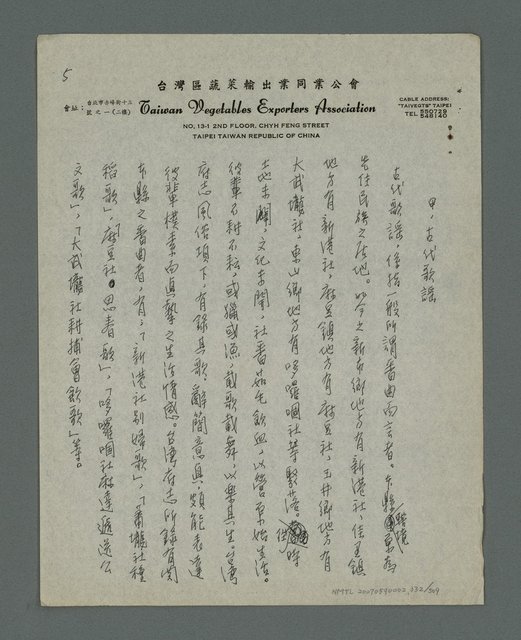 5
台灣區蔬菜輸出業同業公會
會址：台北市赤峰街十三號之一(二樓)
Taiwan Vegetables Exporters Association
NO. 13-1 2ND FLOOR, CHYH FENG STREET
TAIPEI TAIWAN REPUBLIC OF CHINA
CABLE ADDRESS:
"TAIVEGTS" TAIPEI
TEL. 550728
548140
甲、古代歌謠
古代歌謠，係指一般所謂番曲而言者。本縣轄境為
先住民族之居地。如今之新市鄉地方有新港社，佳里鎮
地方有新港社，麻豆鎮地方有麻豆社，玉井鄉地方有
大武壠社，東山鄉地方有哆囉嘓社等聚落。往時
土地未闢，文化未開，社番茹毛飲血，以營原始生活。
彼輩耕不耘，或獵或漁，載歌載舞，以樂其生。台灣
府志風俗項下，有錄其歌，辭簡意真，頗能表達
彼輩樸素而真摯之生活情感。台灣府志所錄有關
本縣之番曲者，有：「新港社別婦歌」，「蕭壠社種
稻歌」，「麻豆社思春歌」，「哆囉嘓社麻達遞送公
文歌」，「大武壠社耕捕會飲歌」等。
NMTL 20070590002_332/509